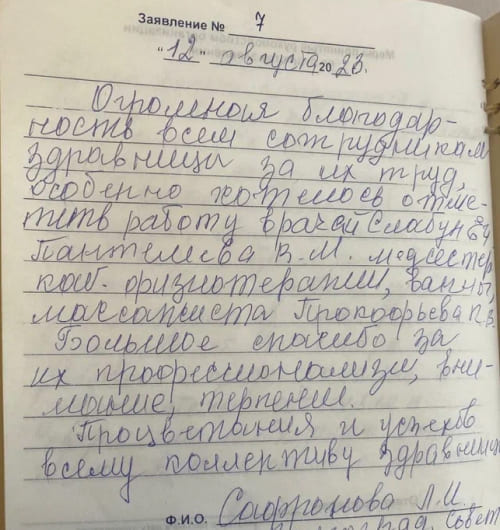 Заявление № 7
"12" августа 20 23.
Огромная благодар-
ность всем сотрудникам
здравницы за их труд,
особенно хотелось отме-
тить работу врачей Слабун
Пантелеева В.М. медсестер
каб. физиотерапии, ванны
массажиста Прокофьева
Большое спасибо за
их профессионализм, вни-
мание, терпение.
Процветания и успехов
всему коллективу здравницы
Ф.И.О. Сафронова Л.И.